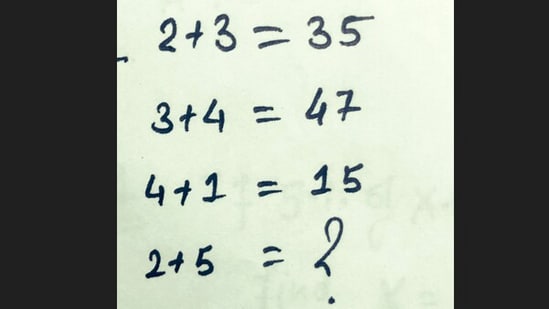 2+3 = 35
3+4 = 47
4+1 = 15
2+5 = ?